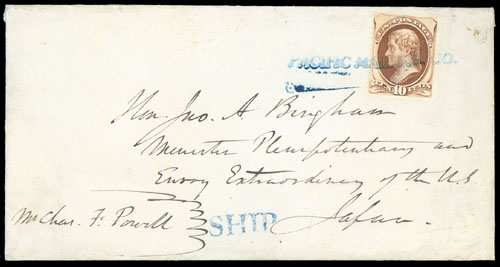 PACIFIC MAIL S.S. CO.
10
Hon. Jno. A Bingham
Minister Plenipotentiary and
Envoy Extraordinary of the U.S
Japan.
Mr Chas. F. Powell
SHIP